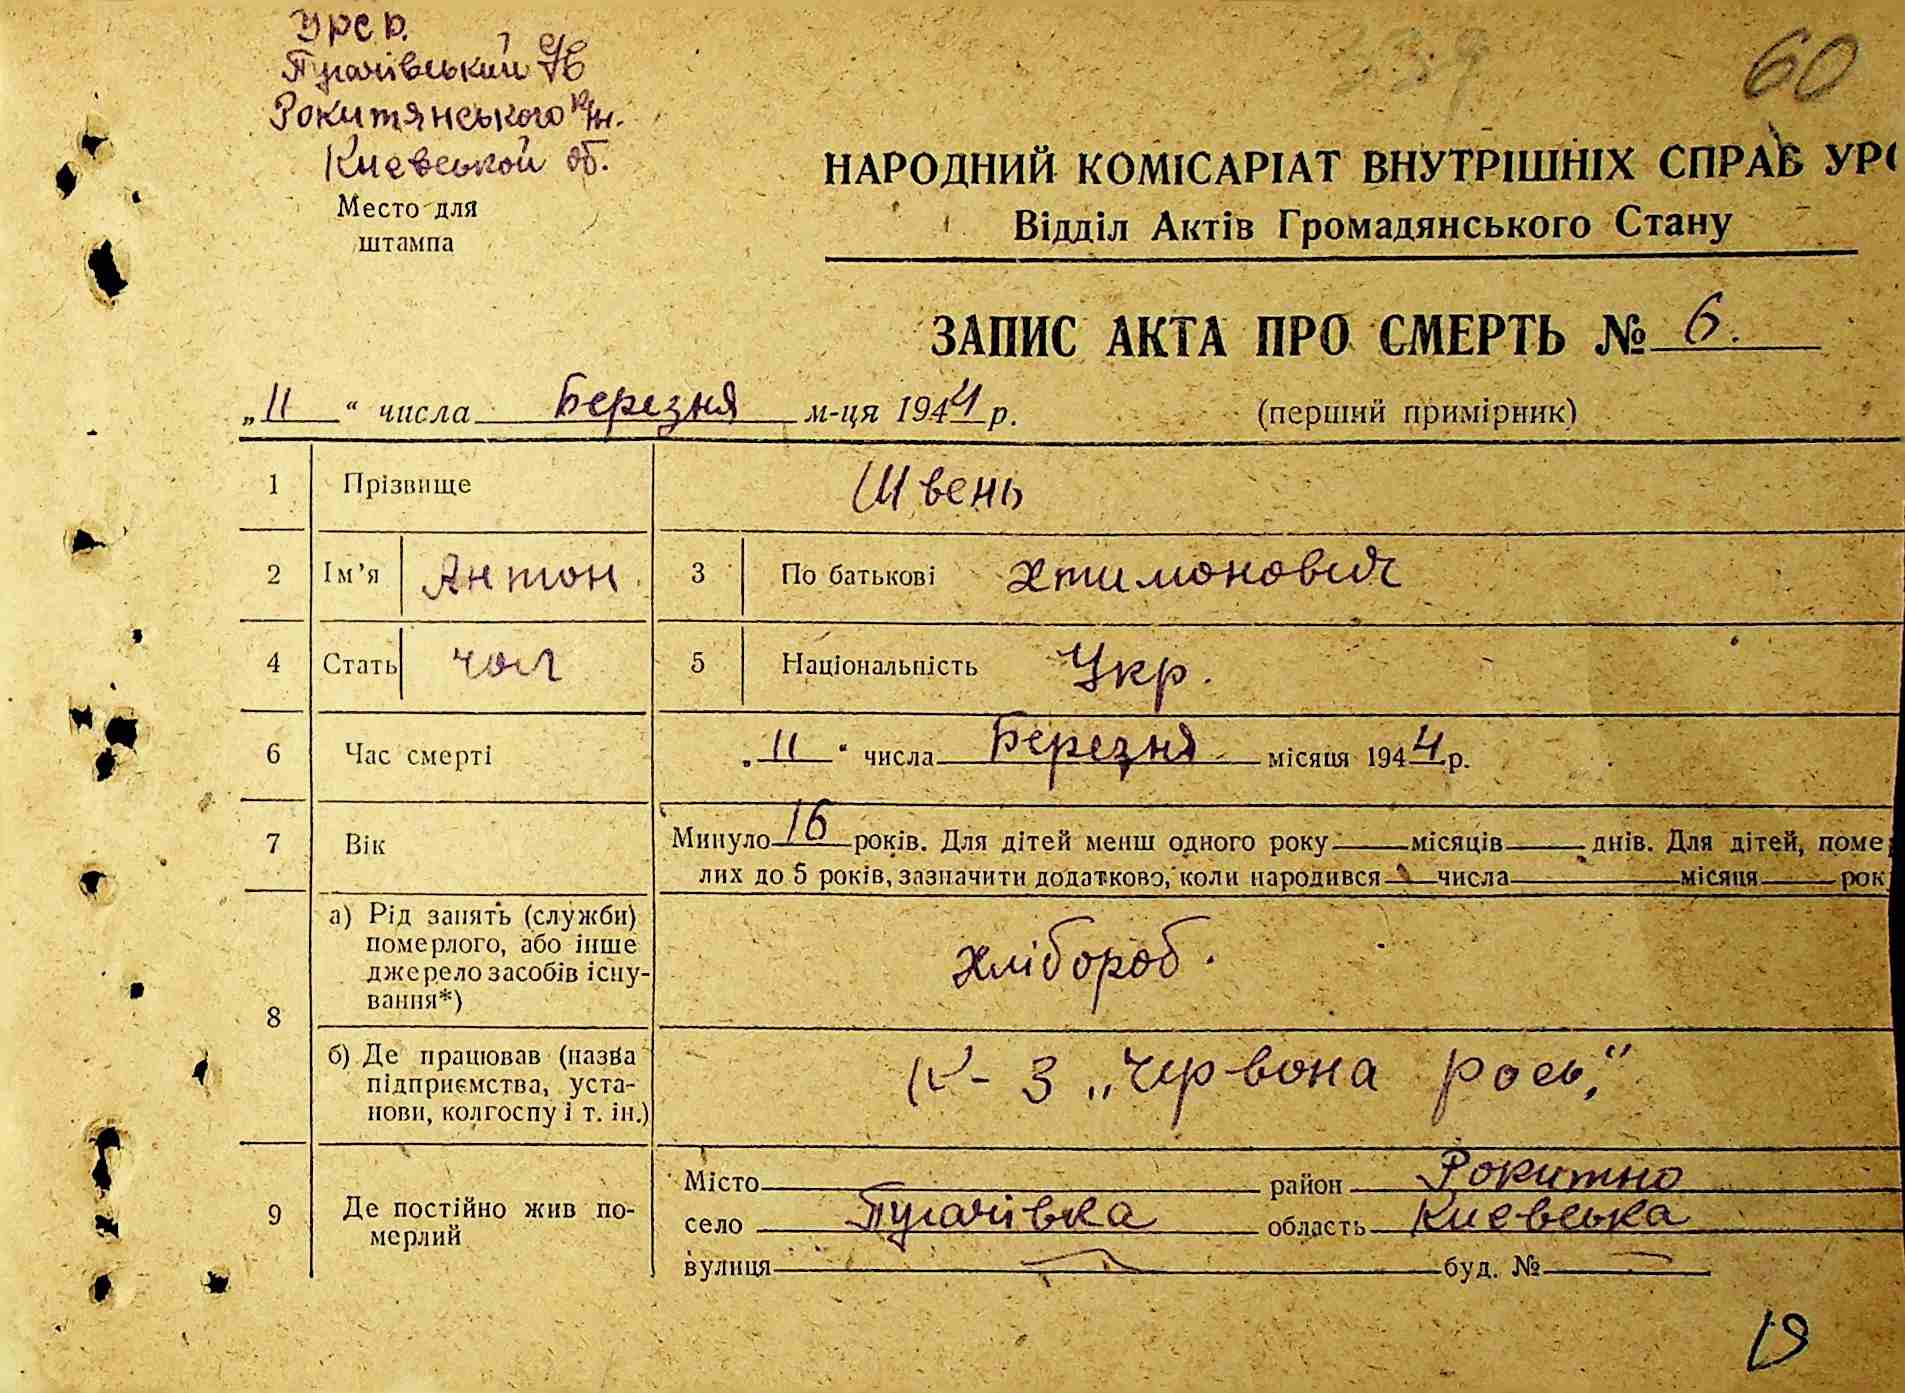 УРСР.
Пугачівський с/в
Рокитянського р/н.
Киевськой об.
Место для
штампа
339
60
НАРОДНИЙ КОМІСАРІАТ ВНУТРІШНІХ СПРАВ УРС
Відділ Актів Громадянського Стану
ЗАПИС АКТА ПРО СМЕРТЬ № 6.
„11“ числа Березня м-ця 1944 р. (перший примірник)
1 Прізвище Швень
2 Ім’я Антон 3 По батькові Хтимонович
4 Стать чол 5 Національність Укр.
6 Час смерті „11“ числа Березня місяця 1944 р.
7 Вік Минуло 16 років. Для дітей менш одного року місяців днів. Для дітей, поме
лих до 5 років, зазначити додатково, коли народився числа місяця рок
8 а) Рід занять (служби)
померлого, або інше
джерело засобів існу-
вання*) хлібороб.
б) Де працював (назва
підприємства, уста-
нови, колгоспу і т. ін.) К-з „Червона рось“
9 Де постійно жив по-
мерлий
Місто район Рокитно
село Пугачівка область Киевська
вулиця буд. №
19